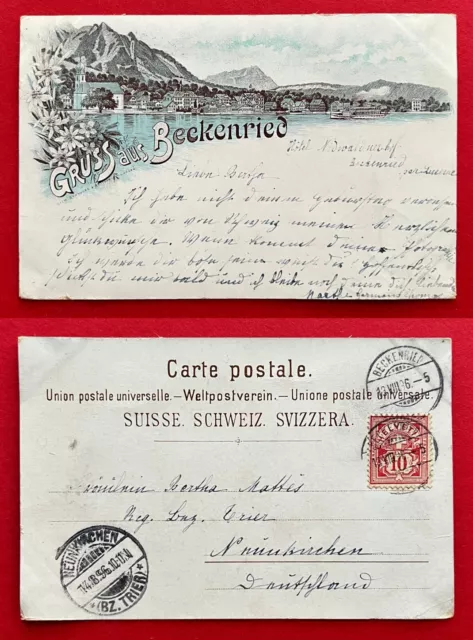 Gruss aus Beckenried
Hôtel Nidwaldnerhof
Beckenried
Liebe Bertha
Ich habe nicht deinen Geburtstag vergessen
und schicke dir von Schweiz meinen herzlichen
Glückwunsch. Wann kommt deine
ich werde dir böse sein wenn du
mir bald und ich bleibe noch deine dich liebende
Carte postale.
Union postale universelle. – Weltpostverein. – Unione postale universale.
SUISSE. SCHWEIZ. SVIZZERA.
BECKENRIED
13 VIII 96 – 5
HELVETIA
10
Fräulein Bertha Mattes
Reg. Bez. Trier
Neunkirchen
Deutschland
NEUNKIRCHEN
14.8.96.10-11.V.
*(BZ. TRIER)*